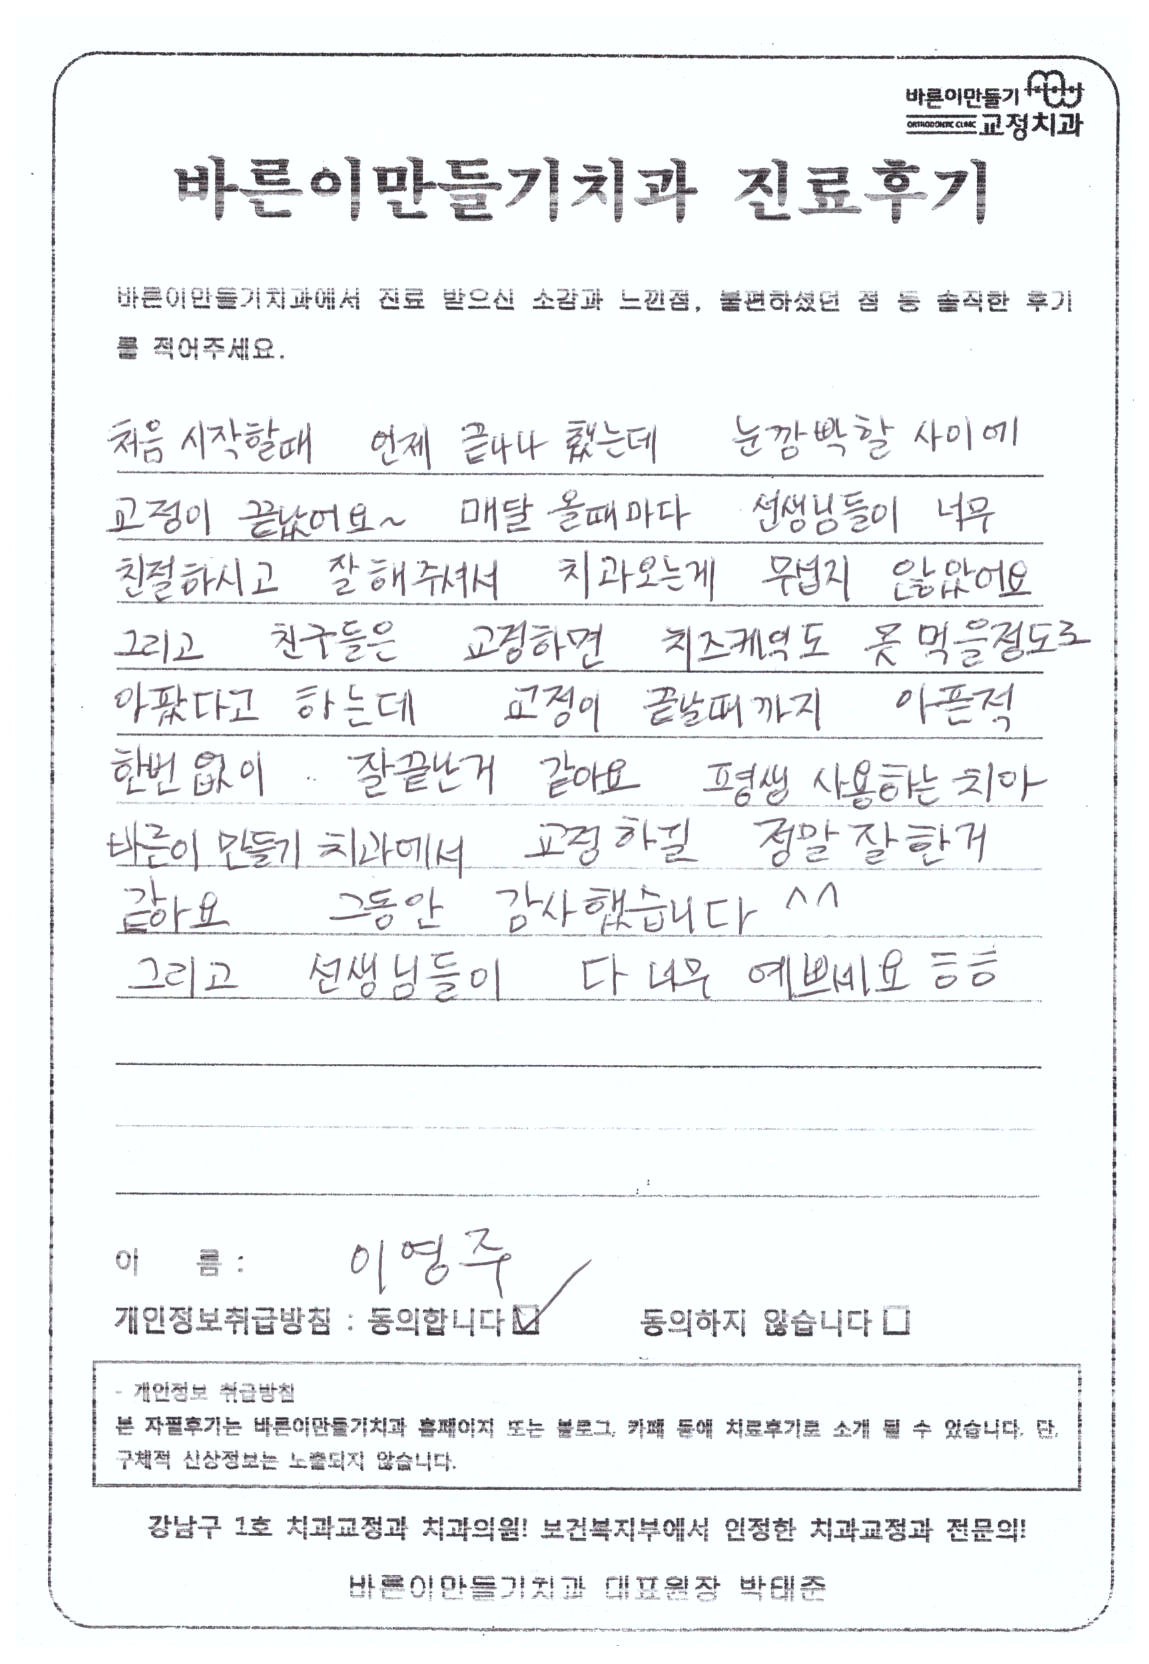 바른이만들기
ORTHODONTIC CLINIC 교정치과
바른이만들기치과 진료후기
바른이만들기치과에서 진료 받으신 소감과 느낀점, 불편하셨던 점 등 솔직한 후기
를 적어주세요.
처음 시작할때 언제 끝나나 했는데 눈깜빡할 사이에
교정이 끝났어요~ 매달 올때마다 선생님들이 너무
친절하시고 잘해주셔서 치과오는게 무섭지 않았어요
그리고 친구들은 교정하면 치즈케익도 못먹을정도로
아팠다고 하는데 교정이 끝날때까지 아픈적
한번없이 .. 잘끝난거 같아요 평생 사용하는 치아
바른이 만들기 치과에서 교정하길 정말 잘한거
같아요 그동안 감사했습니다 ^^
그리고 선생님들이 다 너무 예쁘네요 ㅎㅎ
이 름 : 이영주
개인정보취급방침 : 동의합니다 동의하지 않습니다
- 개인정보 취급방침
본 자필후기는 바른이만들기치과 홈페이지 또는 블로그, 카페 등에 치료후기로 소개 될 수 있습니다. 단,
구체적 신상정보는 노출되지 않습니다.
강남구 1호 치과교정과 치과의원! 보건복지부에서 인정한 치과교정과 전문의!
바른이만들기치과 대표원장 박태준